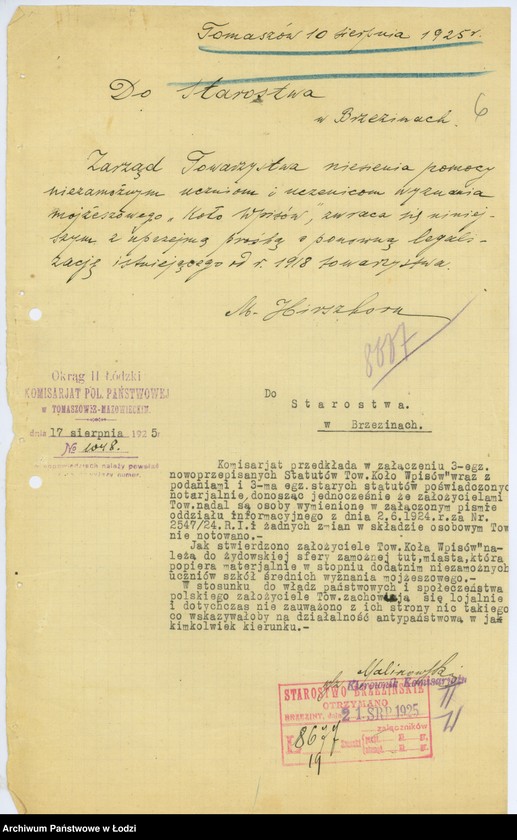 Tomaszów 10 sierpnia 1925 r.
Do Starostwa
w Brzezinach.
6
Zarząd Towarzystwa niesienia pomocy
niezamożnym uczniom i uczenicom wyznania
mojżeszowego „Koło Wpisów", zwraca się niniej-
szym z uprzejmą prośbą o ponowną legali-
zację istniejącego od r. 1918 towarzystwa.
M. Hirszhorn
8677
Okrąg II Łódzki
KOMISARJAT POL. PAŃSTWOWEJ
w TOMASZOWIE-MAZOWIECKIM.
dnia 17 sierpnia 1925r
№ 1048.
należy powołać
numer.
Do
Starostwa.
w Brzezinach.
Komisarjat przedkłada w załączeniu 3-egz.
nowoprzepisanych Statutów Tow.Koło Wpisów"wraz z
podaniami i 3-ma egz.starych statutów poświadczono
notarjalnie,donosząc jednocześnie że założycielami
Tow.nadal są osoby wymienione w załączonym pismie
oddziału informacyjnego z dnia 2.6.1924.r.za Nr.
2547/24.R.I.i żadnych zmian w składzie osobowym Tow
nie notowano.-
Jak stwierdzono założyciele Tow.Koła Wpisów"na-
leżą do żydowskiej sfery zamożnej tut.miasta,która
popiera materjalnie w stopniu dodatnim niezamożnych
uczniów szkół średnich wyznania mojżeszowego.-
W stosunku do władz państwowych i społeczeństwa
polskiego założyciele Tow.zachowują się lojalnie
i dotychczas nie zauważono z ich strony nic takiego
co wskazywałoby na działalność antypaństwową w jak
kimkolwiek kierunku.-
Malinowski
Kierownik Komisarjatu
STAROSTWO BRZEZIŃSKIE
OTRZYMANO
BRZEZINY, dnia 21 SRP 1925
załączników
№ 8677
19
Archiwum Państwowe w Łodzi